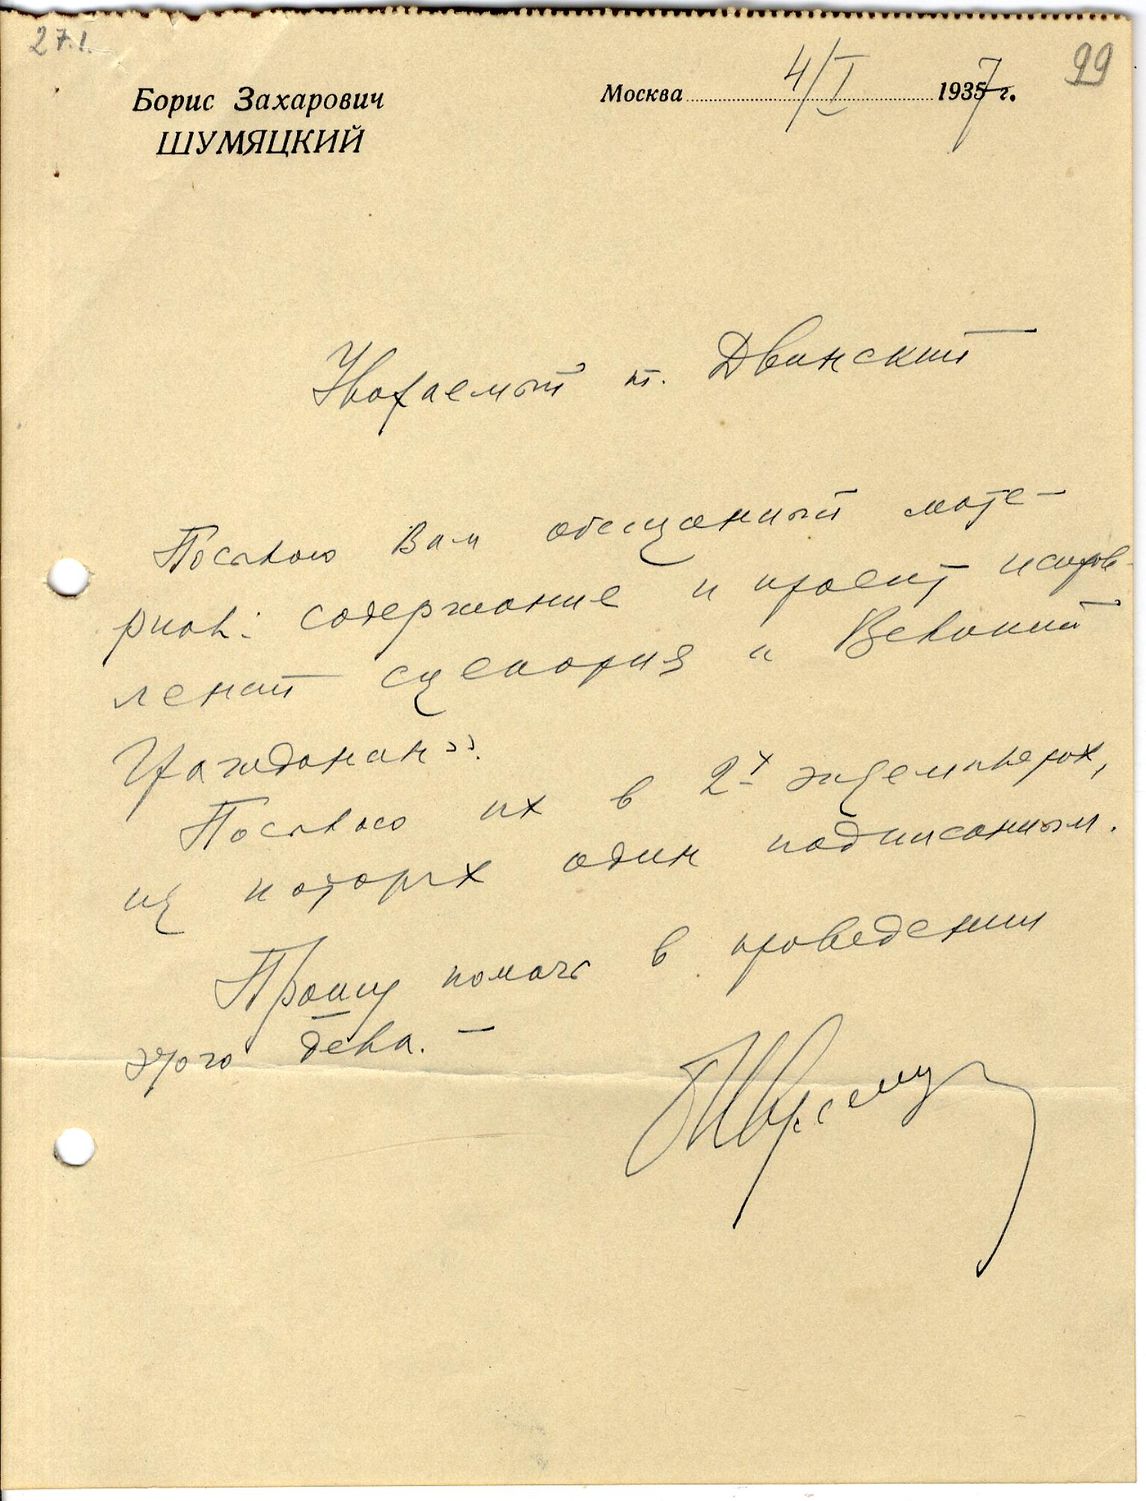 27.1.
99
Борис Захарович
ШУМЯЦКИЙ
Москва 4/I 1937 г.
Уважаемый т. Двинский
Посылаю Вам обещанный мате-
риал: содержание и проект исправ-
лений сценария „Великий
Гражданин».
Посылаю их в 2х экземплярах,
из которых один подписанным.
Прошу помочь в проведении
этого дела. –